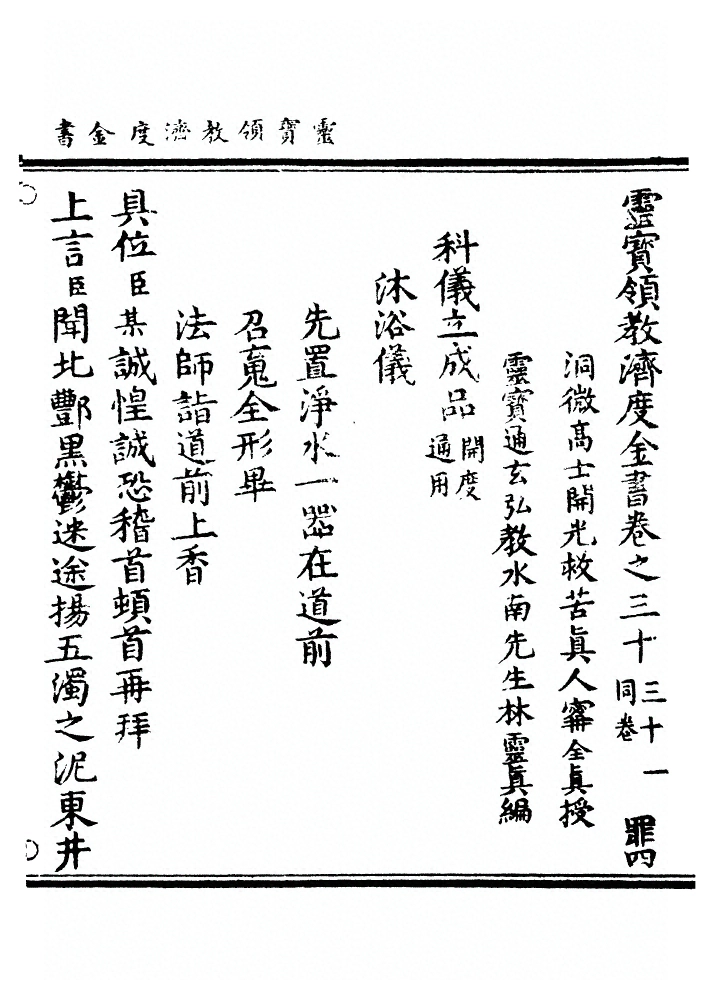 靈寶領教濟度金書
靈寶領教濟度金書卷之三十 三十一同卷 罪四
洞微高士開光救苦眞人寗全眞授
靈寶通玄弘教水南先生林靈眞編
科儀立成品 開度通用
沐浴儀
先置淨水一器在道前
召䰟全形畢
法師詣道前上香
具位臣某誠惶誠恐稽首頓首再拜
上言臣聞北酆黑鬱迷途揚五濁之泥東井